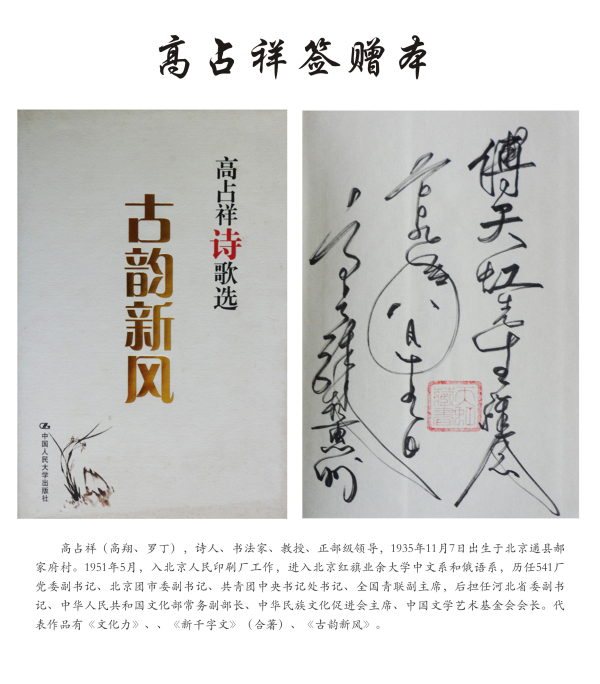 高占祥签赠本
高占祥诗歌选
古韵新风
中国人民大学出版社
傅天虹先生
八月
高占祥 惠州
天虹藏書
高占祥（高翔、罗丁），诗人、书法家、教授、正部级领导，1935年11月7日出生于北京通县郝
家府村。1951年5月，入北京人民印刷厂工作，进入北京红旗业余大学中文系和俄语系，历任541厂
党委副书记、北京团市委副书记、共青团中央书记处书记、全国青联副主席，后担任河北省委副书
记、中华人民共和国文化部常务副部长、中华民族文化促进会主席、中国文学艺术基金会会长。代
表作品有《文化力》、、《新千字文》（合著）、《古韵新风》。